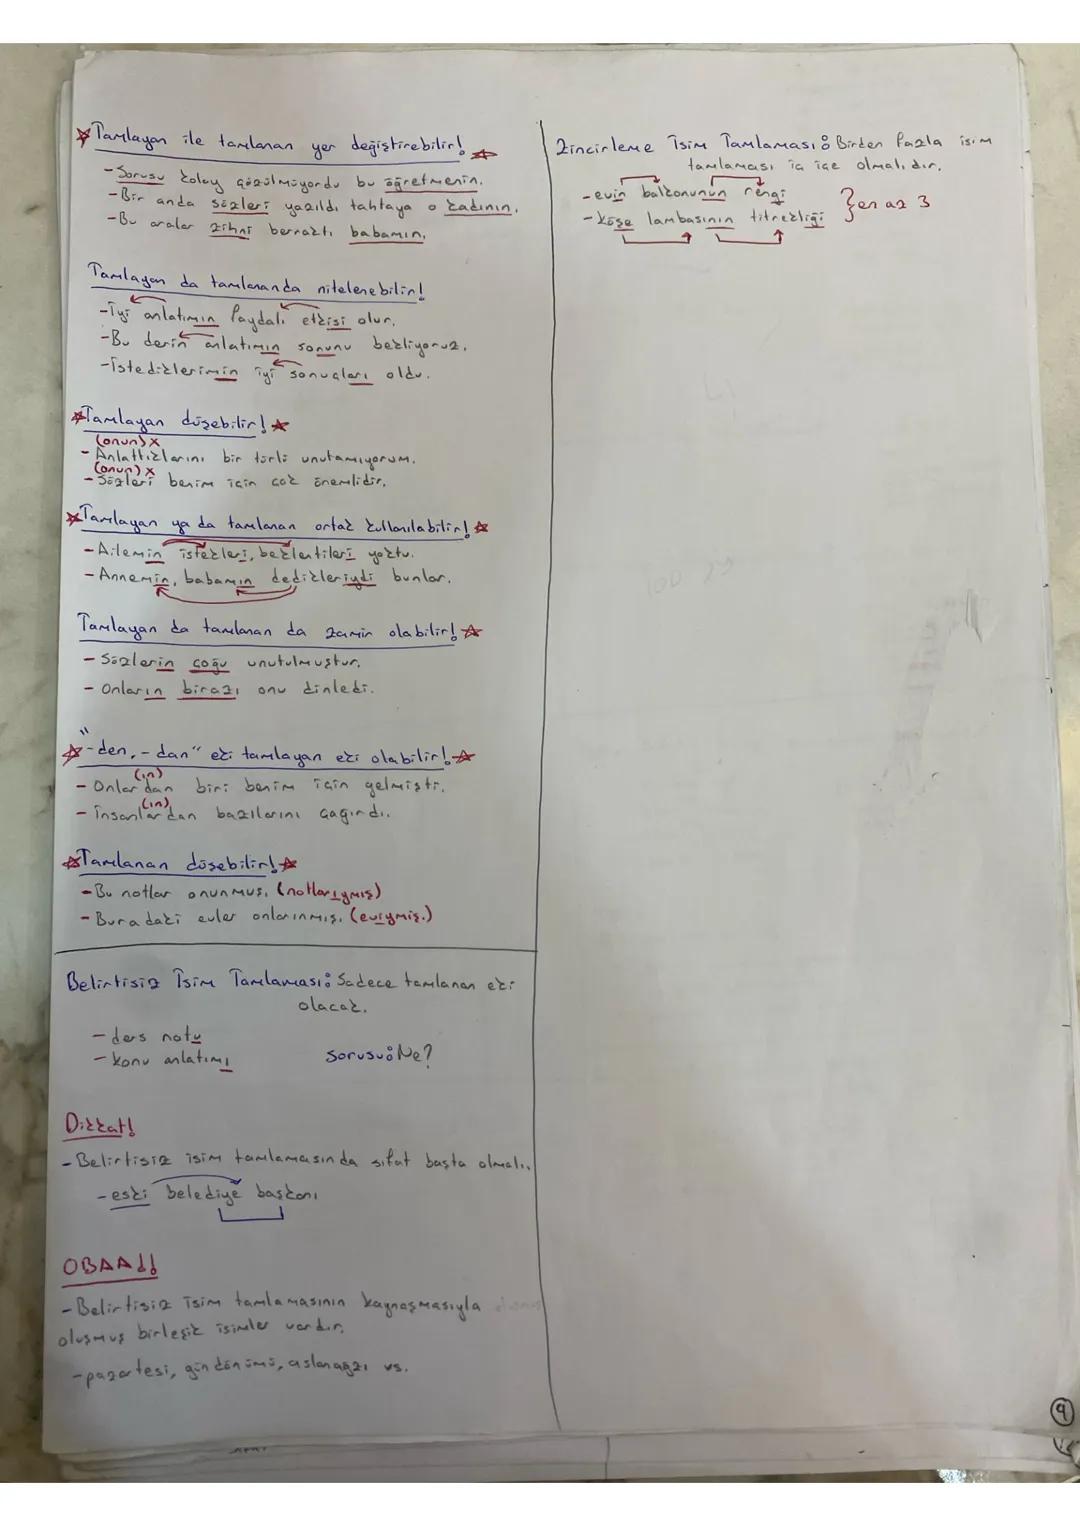 Tamlayan ile tamlanan yer değiştirebilir!
- Sorusu kolay çözülmüyordu bu öğretmenin.
- Bir anda sözleri yazıldı tahtaya o kadının.
- Bu aralar zihni berraktı babamın.
Tamlayan da tamlananda nitelenebilir!
- İyi anlatımın faydalı etkisi olur.
- Bu derin anlatımın sonunu bekliyoruz.
- İstediklerimin iyi sonuçları oldu.
Tamlayan düşebilir!
(onun) x
- Anlattıklarını bir türlü unutamıyorum.
(onun) x
- Sözleri benim için çok önemlidir.
Tamlayan ya da tamlanan ortak kullanılabilir!
- Ailemin istekleri, beklentileri yoktu.
- Annemin, babamın dedikleriydi bunlar.
Tamlayan da tamlanan da zamir olabilir!
- Sözlerin çoğu unutulmuştur.
- Onların birazı onu dinledi.
"-den, -dan" eki tamlayan eki olabilir!
(ın)
- Onlardan biri benim için gelmişti.
(ın)
- İnsanlardan bazılarını çağırdı.
Tamlanan düşebilir!
- Bu notlar onunmuş. (notlarıymış)
- Buradaki evler onlarınmış. (eviymiş.)
Belirtisiz İsim Tamlaması: Sadece tamlanan eki
olacak.
- ders notu
- konu anlatımı sorusu: Ne?
Dikkat!
- Belirtisiz isim tamlamasında sıfat başta olmalı.
- eski belediye başkanı
OBAA!!
- Belirtisiz isim tamlamasının kaynaşmasıyla
oluşmuş birleşik isimler vardır.
- pazartesi, gündönümü, aslanağzı vs.
Zincirleme İsim Tamlaması: Birden fazla isim
tamlaması iç içe olmalıdır.
- evin balkonunun rengi
- köşe lambasının titrekliği } en az 3
9